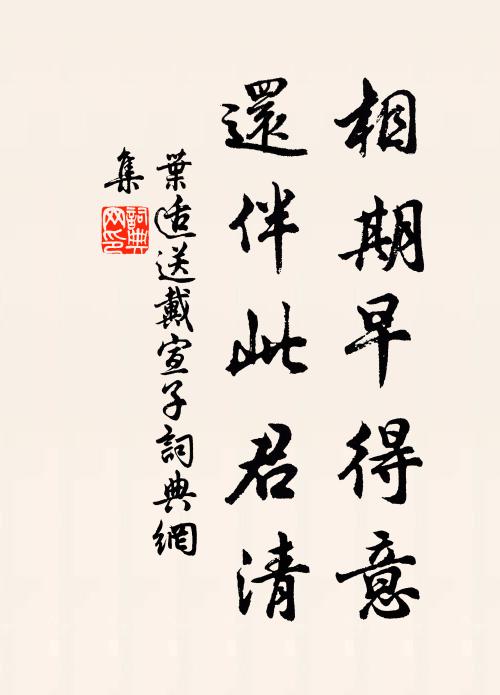 相期早得意
還伴此君清
葉適送戴宣子詞典網
集
詞典網印